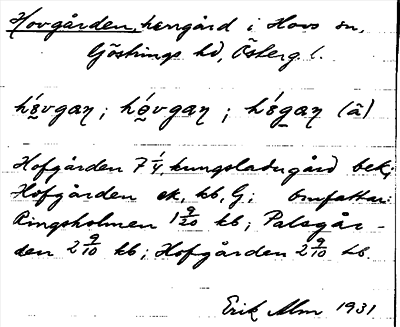 Hovgården, herrgård i Hovs sn,
Göstrings hd, Österg. l.
hɛ́vgaɳ; hə́vgaɳ; hɛ́gaɳ (ā)
Hofgården 7 1/4, kungsladugård bek;
Hofgården ek, kb, G; omfattar:
Ringsholmen 1 9/20 kb; Palsgår-
den 2 9/10 kb; Hofgården 2 9/10 kb.
Erik Alm 1931